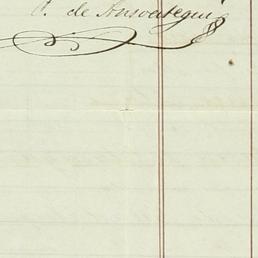 de Ansoategui